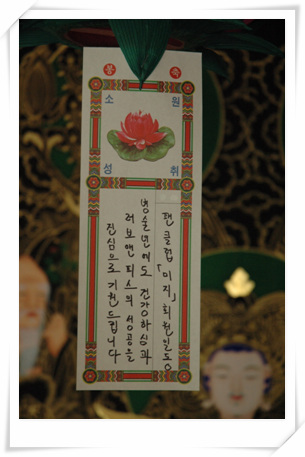 봉축
소원
성취
팬클럽 「미지」 회원일동
병술년에도 건강하심과
러브앤피스의 성공을
진심으로 기원드립니다